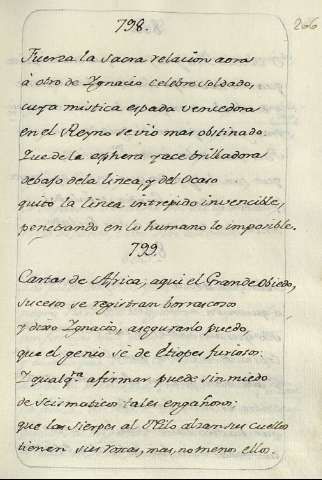 798.
266
Fuerza la sacra relacion aora
à otro de Ygnacio celebre soldado,
cuya mistica espada vencedora
en el Reyno se viò mas obstinado
Que de la esphera yace brilladora
debajo de la linea, y del Ocaso
quitò la linea intrepido invencible,
penetrando en lo humano lo imposible.
799.
Cartas de Africa, aqui el Grande Obiedo,
sucesos se registran borrascosos
y dixo Ygnacio, asegurarlo puedo,
que el genio sè de Etiopes furioso:
Y qualqra. afirmar puede sin miedo
de seismaticos tales engañoso;
que las sierpes al Nilo alzan sus cuellos
tienen sus roscas, mas, no menos ellos.